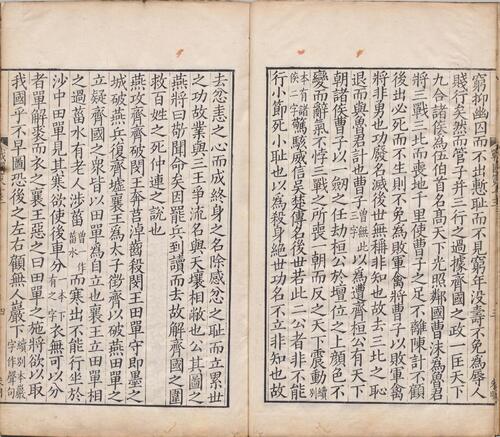 窮抑幽囚而不出慙恥而不見窮年沒壽不免爲辱人
賤行矣然而管子并三行之過據齊國之政一匡天下
九合諸侯爲伍伯首名高天下光照鄰國曹沫爲魯君
將三戰三北而喪地千里使曹子之足不離陳計不顧
後出必死而不生則不免爲敗軍禽將曹子以敗軍禽
將非勇也功廢名滅後世無稱非知也故去三北之恥
退而與魯君計也曹子以爲遭齊桓公有天下
朝諸侯曹子以一劒之任劫桓公於壇位之上顏色不
變而辭氣不悖三戰之所喪一朝而反之天下震動續
本有諸侯二字驚駭威信吳楚傳名後世若此二公者非不能
行小節死小恥也以爲殺身絕世功名不立非知也故
去忿恚之心而成終身之名除感忿之恥而立累世
之功故業與三王爭流名與天壤相敝也公其圖之
燕將曰敬聞命矣因罷兵到讀而去故解齊國之圍
救百姓之死仲連之說也
燕攻齊齊破閔王奔莒淖齒殺閔王田單守即墨之
城破燕兵復齊墟襄王爲太子徵齊以破燕田單之
立疑齊國之衆皆以田單爲自立也襄王立田單相
之過菑水有老人涉菑曾作菑水而寒出不能行坐於
沙中田單見其寒欲使後車分一本下有之字衣無可以分
者單解裘而衣之襄王惡之曰田單之施將欲以取
我國乎不早圖恐後之左右顧無人巖下續別本巖字作聲句